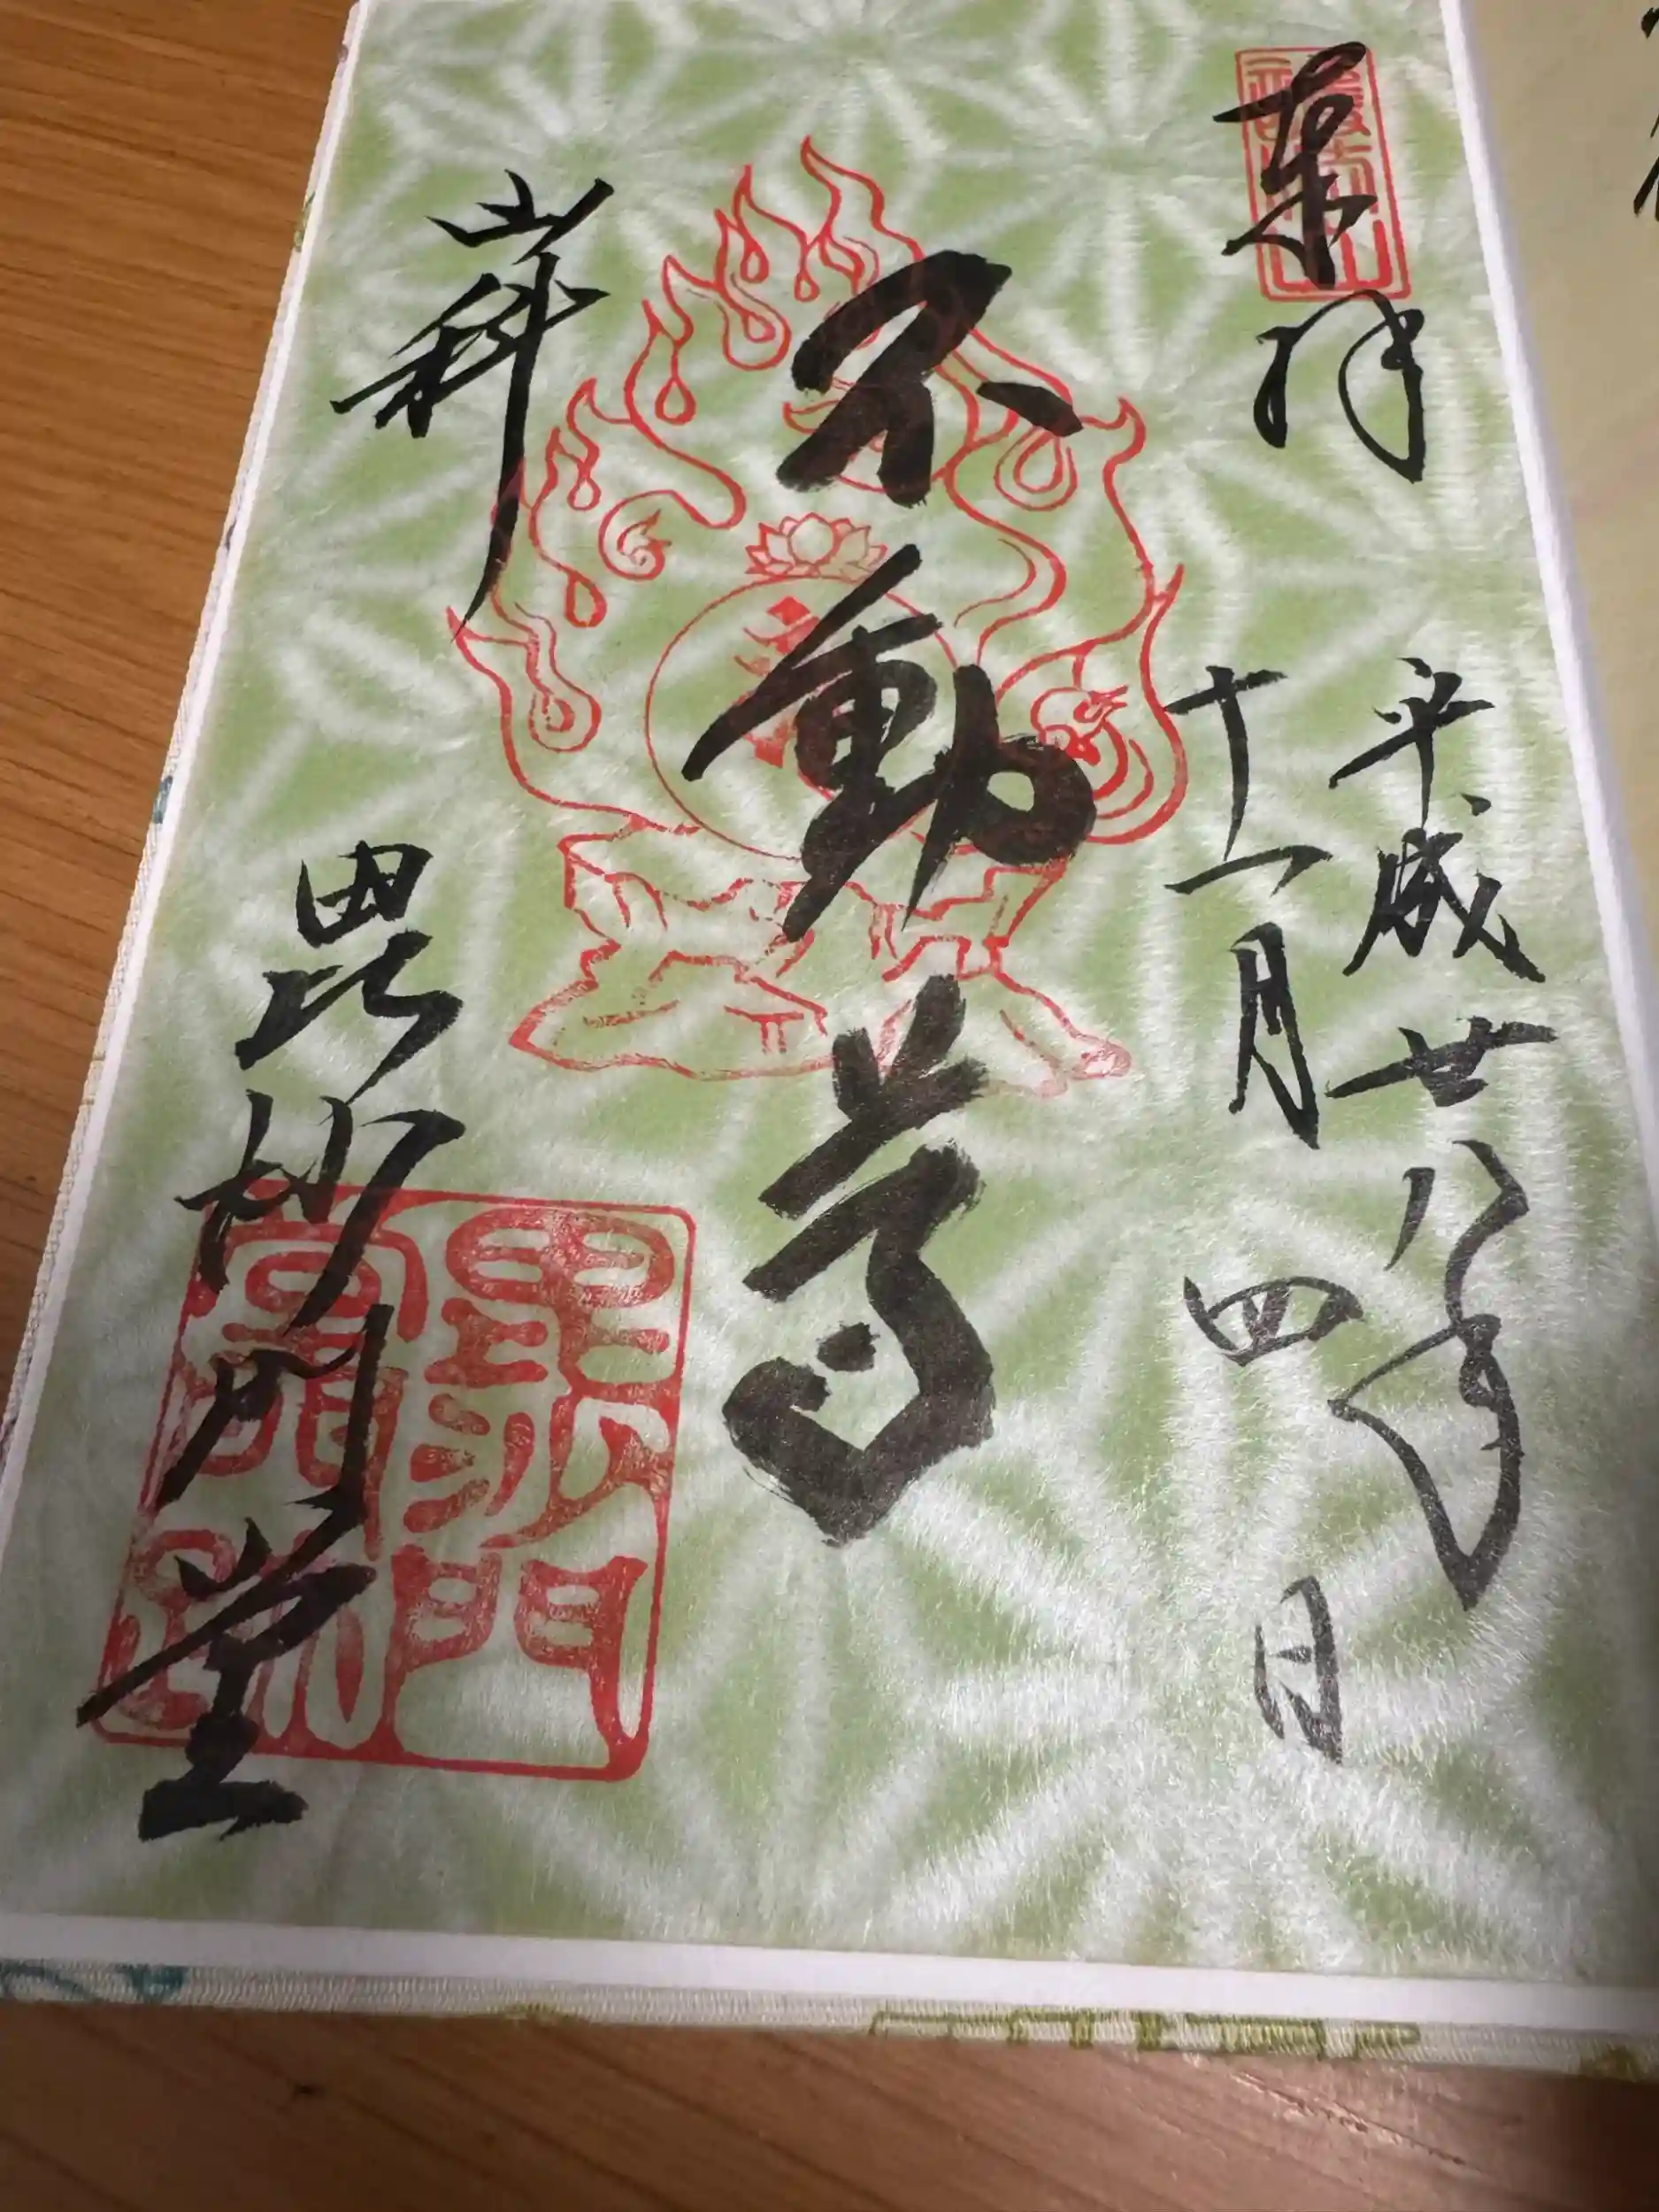 奉拝
平成廿八年
十一月四日
不動尊
山科
毘沙門堂
毘沙門
堂門跡